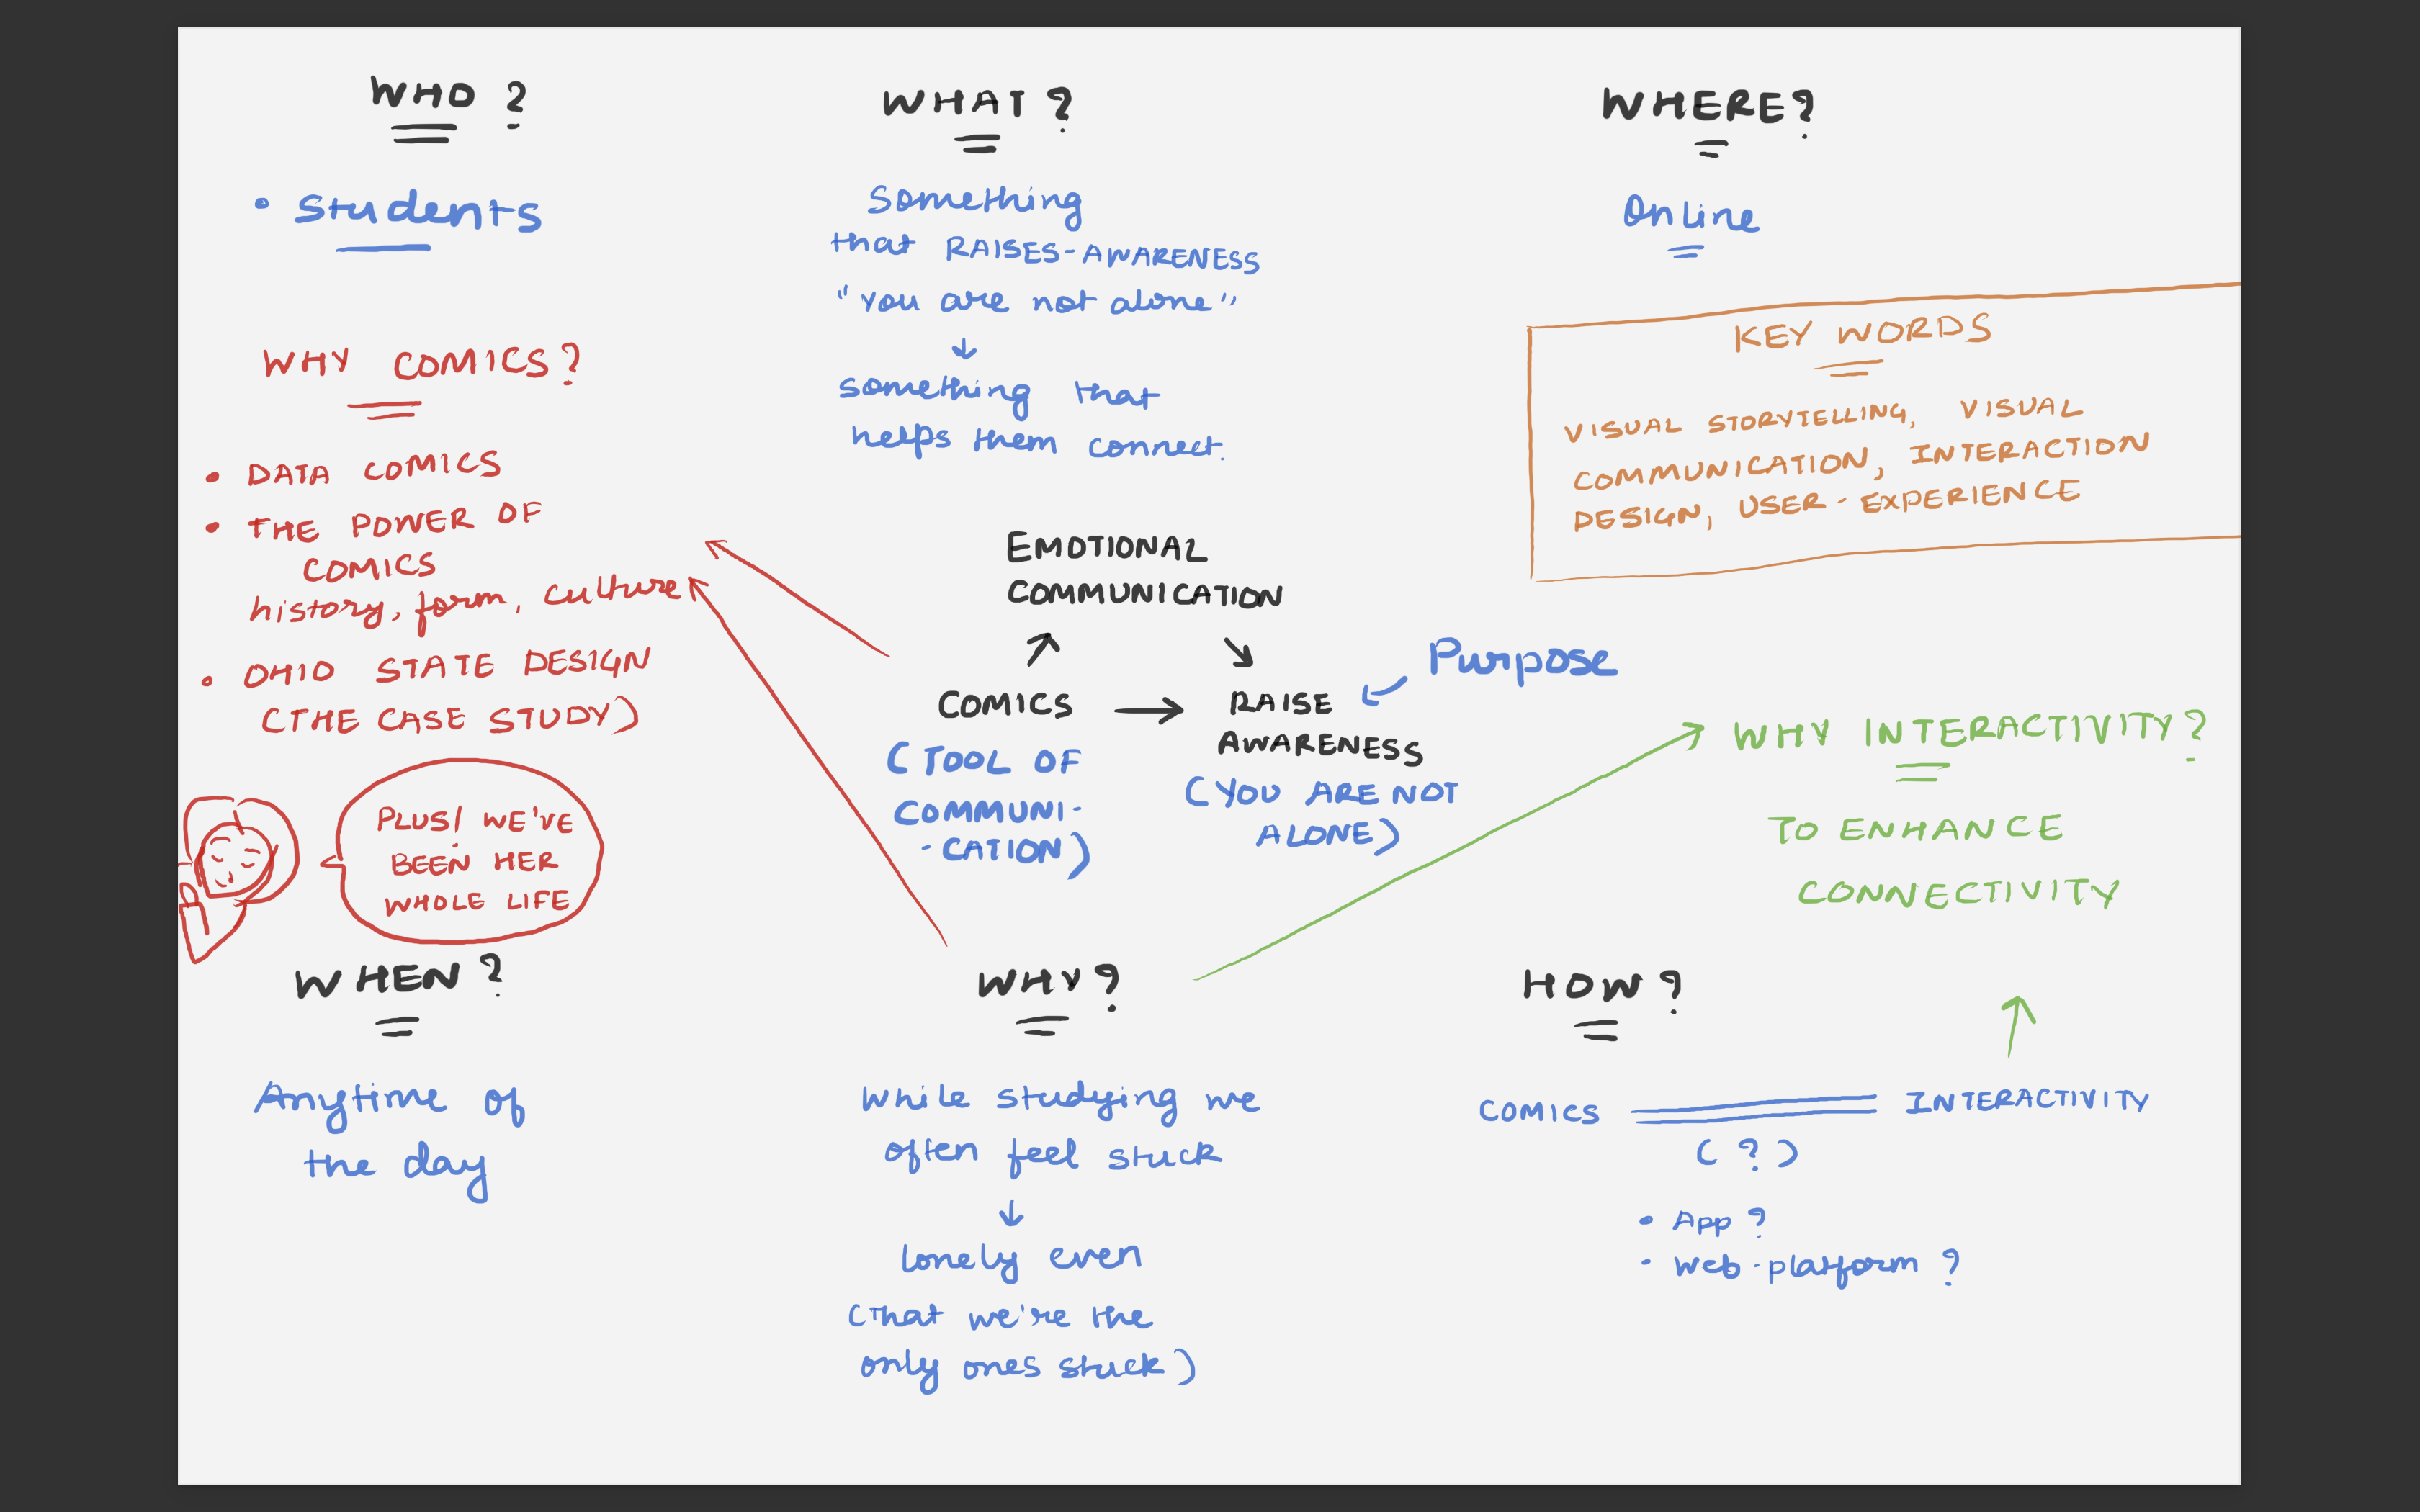 WHO ?
• students
WHY COMICS?
• DATA COMICS
• THE POWER OF
COMICS
history, form, culture
• OHIO STATE DESIGN
(THE CASE STUDY)
PLUS/ WE'VE
BEEN HER
WHOLE LIFE
WHEN ?
Anytime of
the day
WHAT ?
Something
that RAISES-AWARENESS
"you are not alone"
↓
something that
helps them connect.
EMOTIONAL
COMMUNICATION
COMICS → RAISE
AWARENESS
(TOOL OF
COMMUNI-
-CATION)
(YOU ARE NOT
ALONE)
Purpose
WHY ?
While studying we
often feel stuck
↓
lonely even
(that we're the
only ones stuck)
WHERE?
Online
KEY WORDS
VISUAL STORYTELLING, VISUAL
COMMUNICATION, INTERACTION
DESIGN, USER-EXPERIENCE
WHY INTERACTIVITY?
TO ENHANCE
CONNECTIVITY
HOW ?
COMICS INTERACTIVITY
(?)
• App ?
• web-platform ?